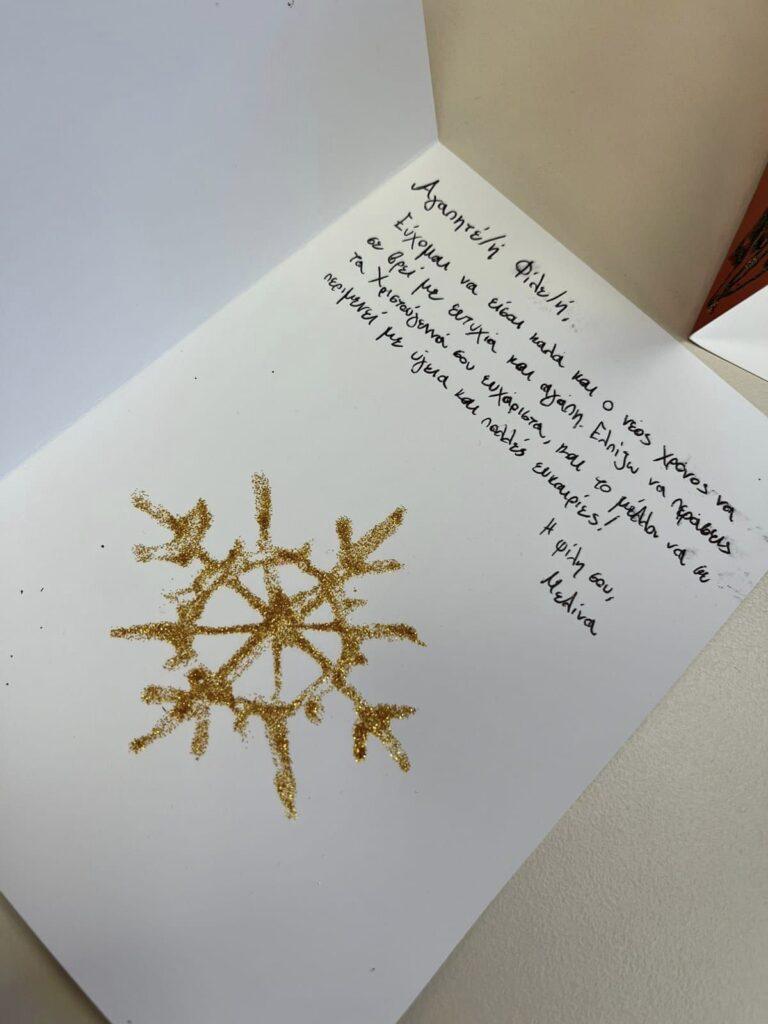 Αγαπητέ/ή Φίλε/ή,
Εύχομαι να είσαι καλά και ο νέος χρόνος να
σε βρεί με ευτυχία και αγάπη. Ελπίζω να περάσεις
τα Χριστούγεννά σου ευχάριστα, και το μέλλον να σε
περιμένει με ύγεια και πολλές ευκαιρίες!
Η φίλη σου,
Μελίνα